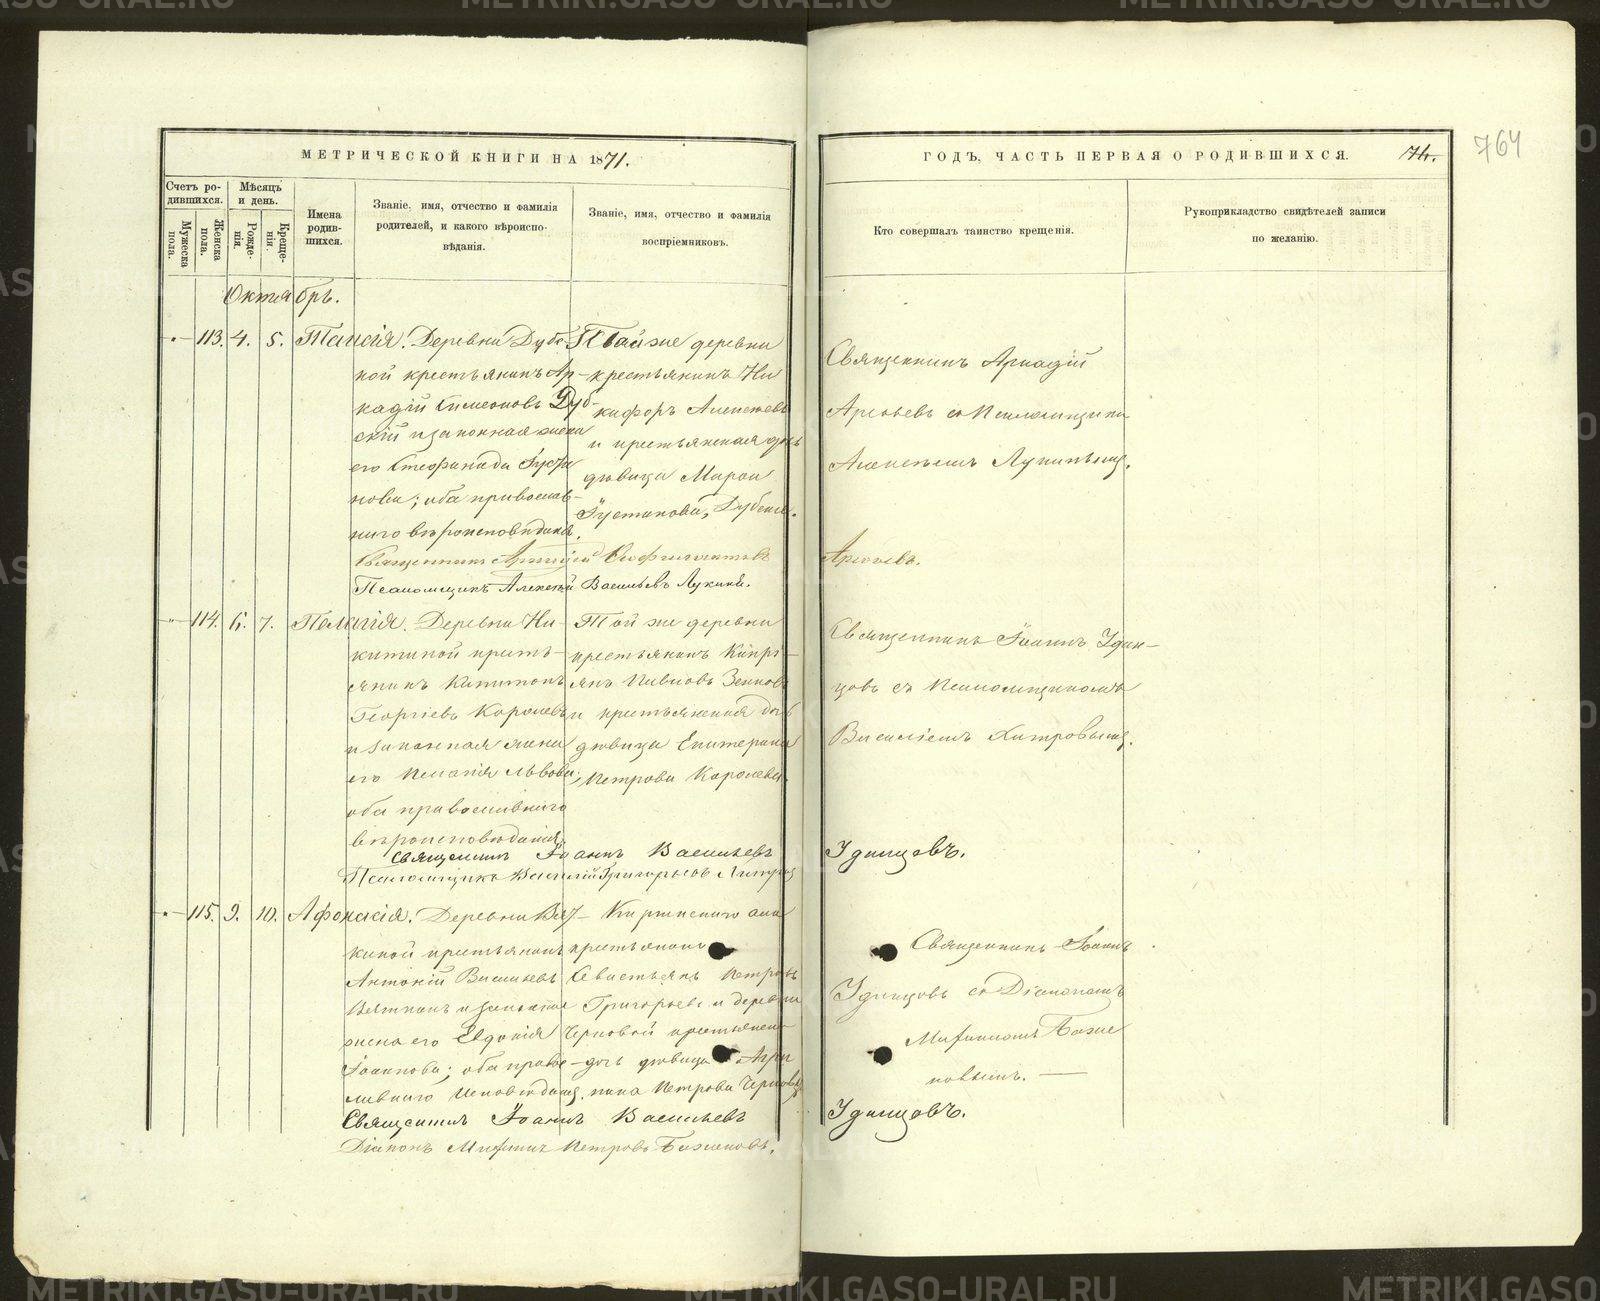 МЕТРИЧЕСКОЙ КНИГИ НА 1871.
Счетъ ро-
дившихся.
Мѣсяцъ
и день.
Мужеска
пола.
Женска
пола.
Рожде-
нія.
Креще-
нія.
Имена
родив-
шихся.
Званіе, имя, отчество и фамилія
родителей, и какого вѣроиспо-
вѣданія.
Званіе, имя, отчество и фамилія
воспріемниковъ.
Октябрь.
113. 4. 5. Таисія. Деревни Дубс
кой крестьянинъ Ар-
кадій Симеоновъ Дуб-
скій и законная жена
его Стефанида
нова; оба православ-
наго вѣроисповѣданія.
Той же деревни
крестьянинъ Ни
кифоръ Алексѣевъ
и крестьянская дочь
дѣвица
Священникъ
Псаломщикъ Алексѣй Васильевъ Лукинъ.
114. 6. 7. Пелагія. Деревни Ни-
китиной кресть-
янинъ Капитонъ
Георгіевъ Королевъ
и законная жена
его Пелагія Львова;
оба православнаго
вѣроисповѣданія.
Той же деревни
крестьянинъ Кипрі-
янъ
и крестьянская дочь
дѣвица Екатерина
Петрова Королева.
Священникъ Іоаннъ Васильевъ
Псаломщикъ Василій Григорьевъ
115. 9. 10. Афонасія. Деревни Вят-
киной крестьянинъ
Антоній Васильевъ
Вяткинъ и законная
жена его Евдокія
Іоаннова; оба право-
славнаго исповѣданія.
крестьянинъ
Севастьянъ Петровъ
Григорьевъ и деревни
Черновой крестьянск-
дочь дѣвица Агри
пина Петрова
Священникъ Іоаннъ Васильевъ
Діаконъ Петровъ Баженовъ.
ГОДЪ, ЧАСТЬ ПЕРВАЯ О РОДИВШИХСЯ.
74.
764
Кто совершалъ таинство крещенія.
Рукоприкладство свидѣтелей записи
по желанію.
Священникъ Аркадій
Арефьевъ съ Псаломщикомъ
Алексѣемъ Лукинымъ.
Арефьевъ.
Священникъ Іоаннъ Удин-
цовъ съ Псаломщикомъ
Василіемъ Хитровымъ.
Удинцовъ.
Священникъ Іоаннъ
Удинцовъ съ Діакономъ
Баже
новымъ.
Удинцовъ.
METRIKI.GASO-URAL.RU